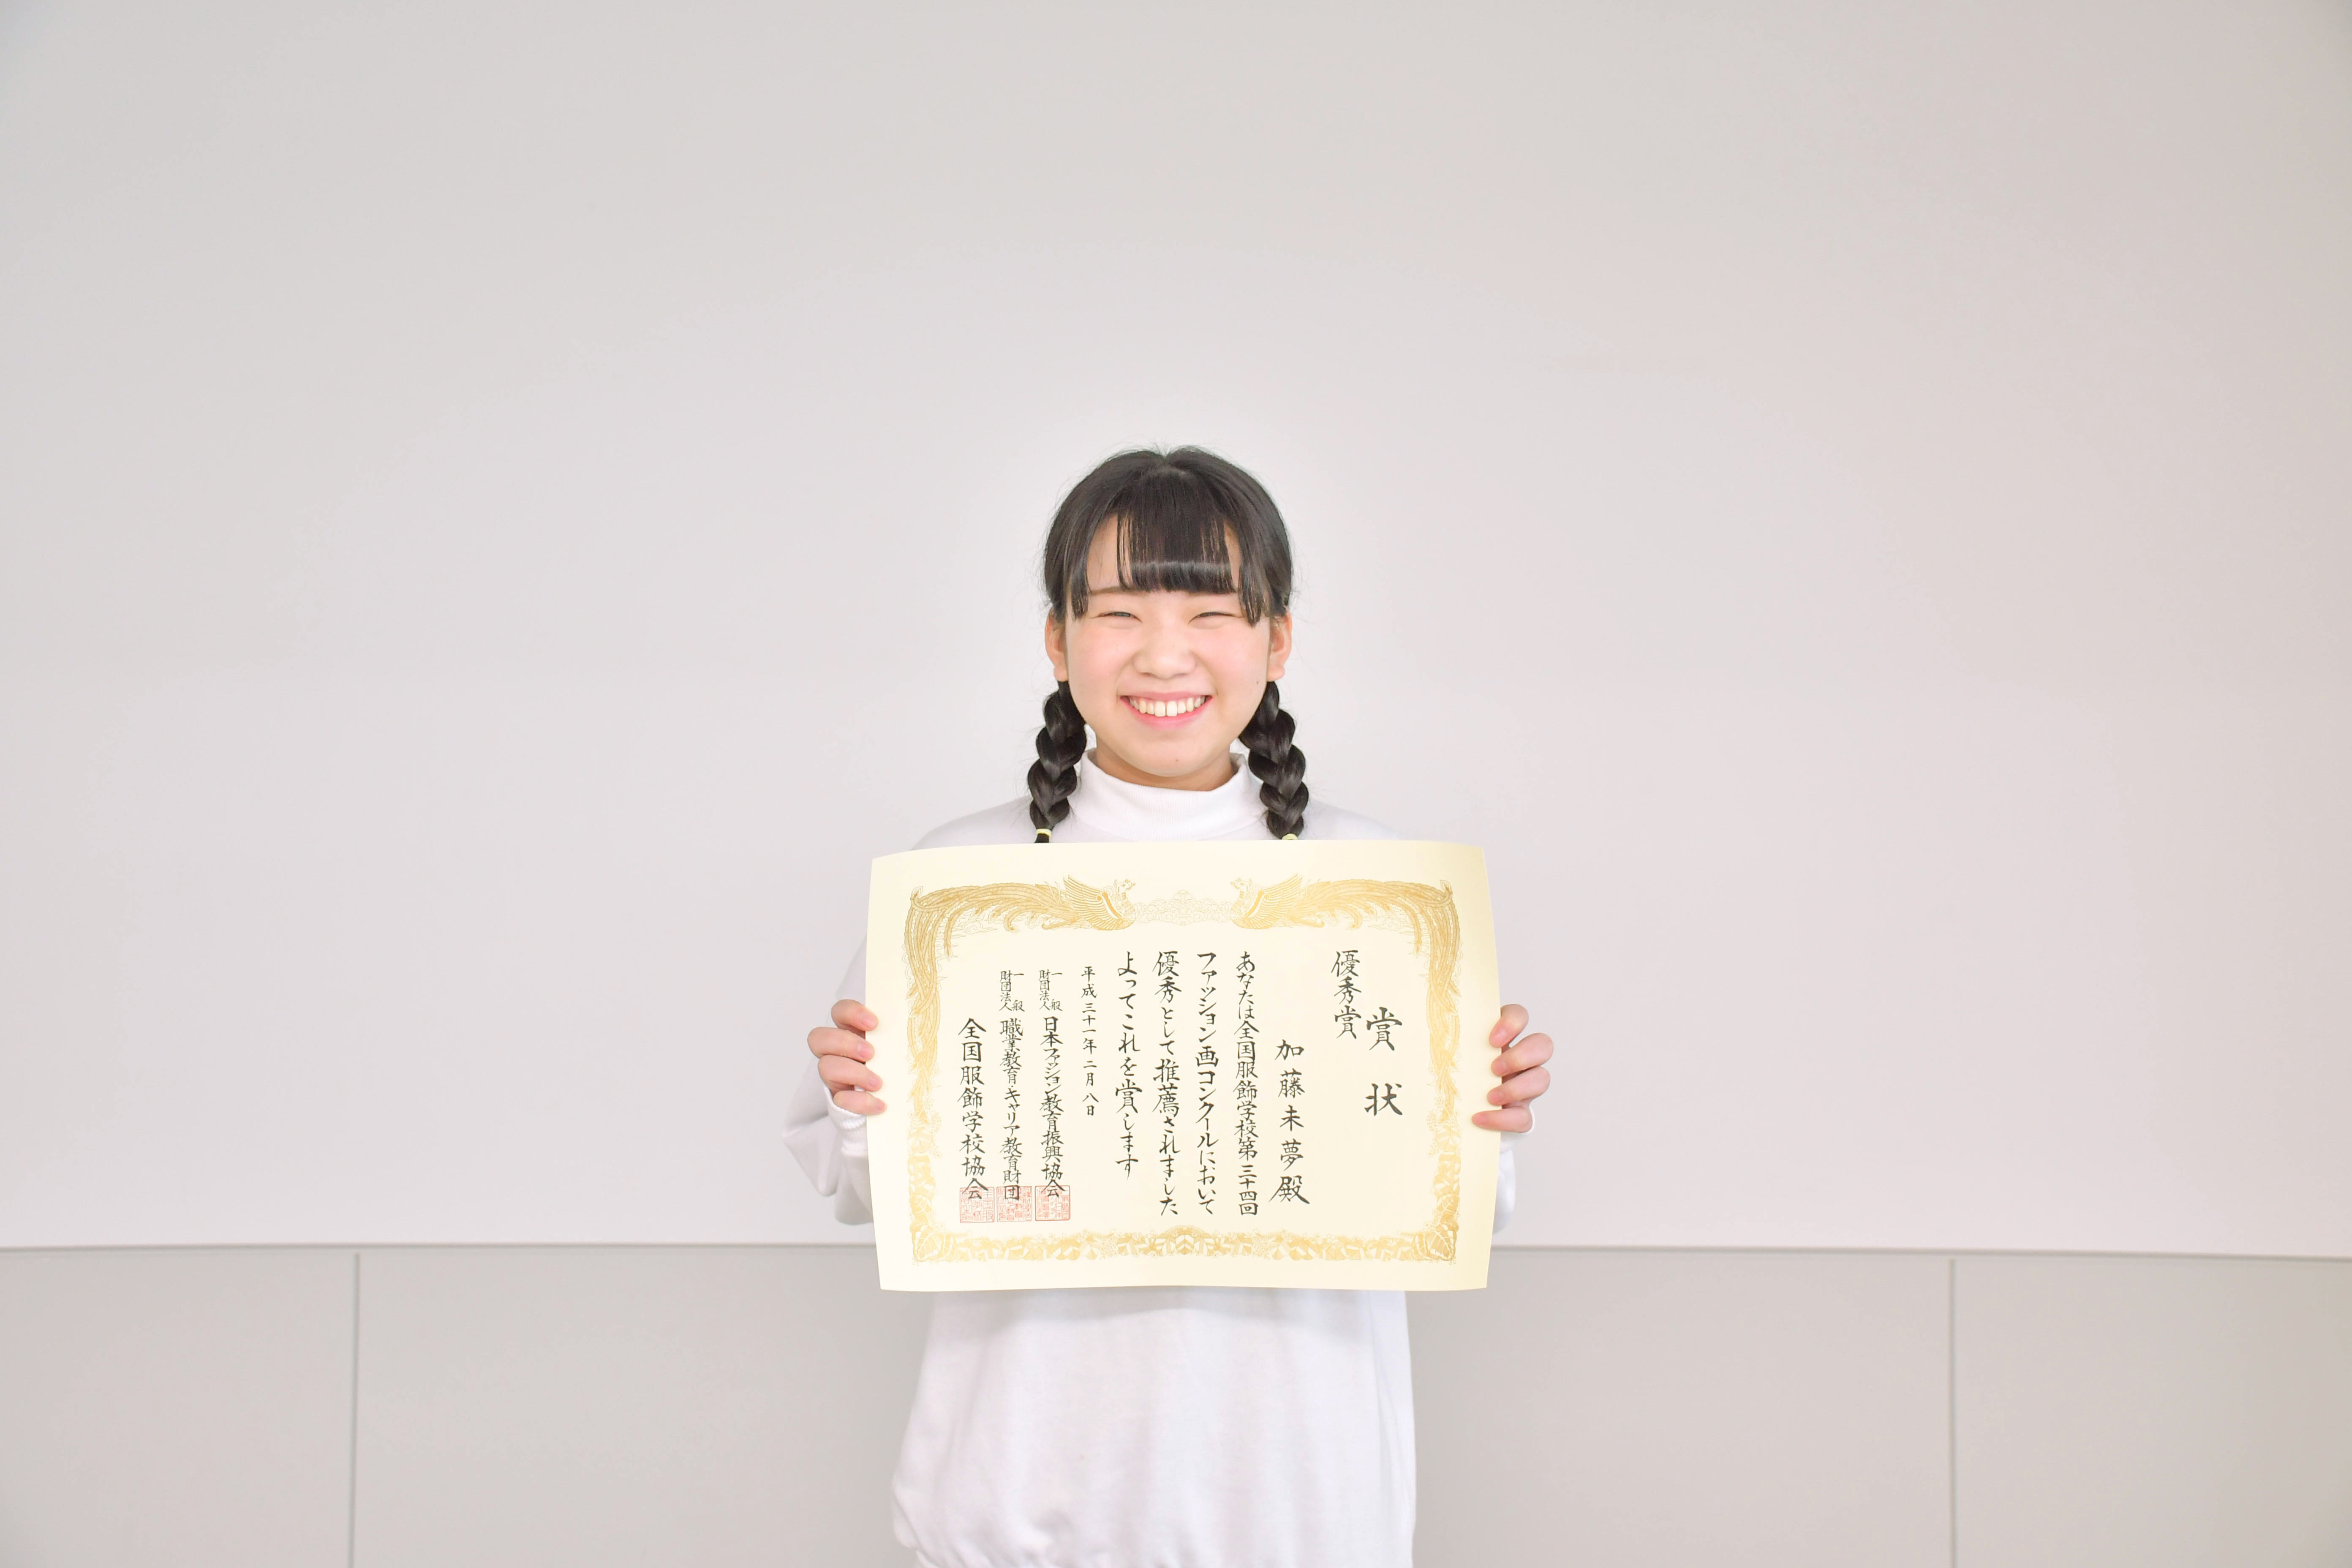 賞状
優秀賞
加藤未夢殿
あなたは全国服飾学校第三十四回
ファッション画コンクールにおいて
優秀として推薦されました
よってこれを賞します
平成三十一年二月八日
一般財団法人 日本ファッション教育振興協会
一般財団法人 職業教育・キャリア教育財団
全国服飾学校協会